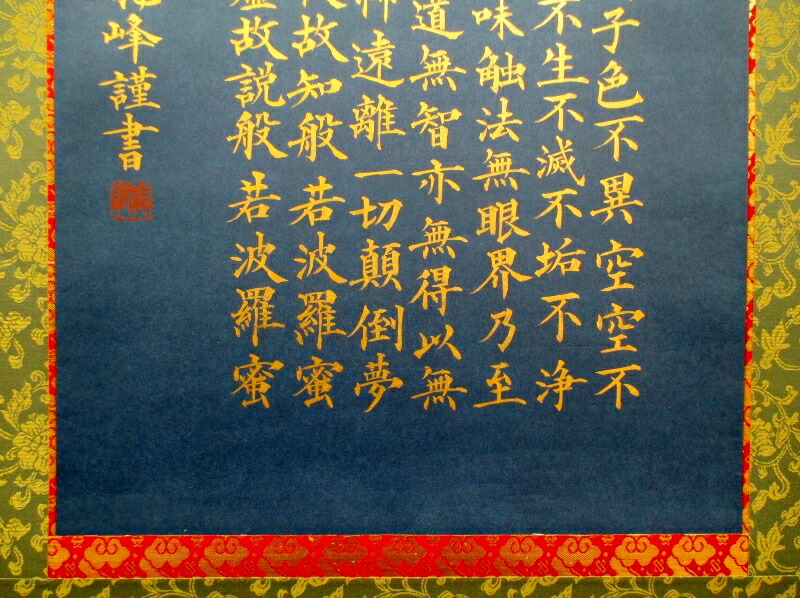 子色不異空空不
不生不滅不垢不浄
味触法無眼界乃至
道無智亦無得以無
遠離一切顛倒夢
故知般若波羅蜜
故説般若波羅蜜
峰謹書